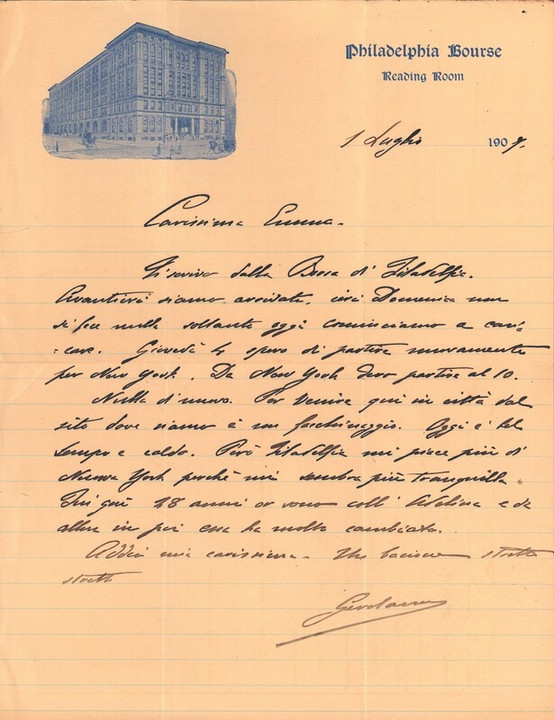 Philadelphia Bourse
Reading Room
1 Luglio 1907.
Carissima Emma.
Ti scrivo dalla Borsa di Filadelfia.
Avantieri siamo arrivati, ieri Domenica non
si fece nulla soltanto oggi cominciamo a cari-
-care. Giovedì 4 spero di partire nuovamente
per New York. Da New York devo partire al 10.
Nulla di nuovo. Per venire qui in città dal
sito dove siamo è un facchinaggio. Oggi è bel
tempo e caldo. Però Filadelfia mi piace più di
Nuova York perchè mi sembra più tranquilla.
Fui quì 28 anni or sono coll' Adelina e da
allora in poi essa ha molto cambiato.
Addio mia carissima. Un bacione stretto
stretto